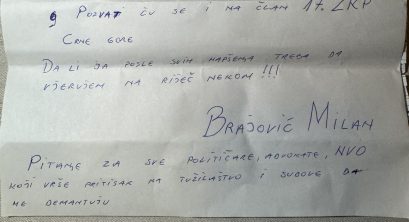 9 POZVATI ĆU SE I NA ČLAN 17. ZKP
CRNE GORE
DA LI JA POSLE SVIH HAPŠENJA TREBA DA
VJERUJEM NA RIJEČ NEKOM !!!
BRAJOVIĆ MILAN
PITANJE ZA SVE POLITIČARE, ADVOKATE, NVO
KOJI VRŠE PRITISAK NA TUŽILAŠTVO I SUDOVE DA
ME DEMANTUJU